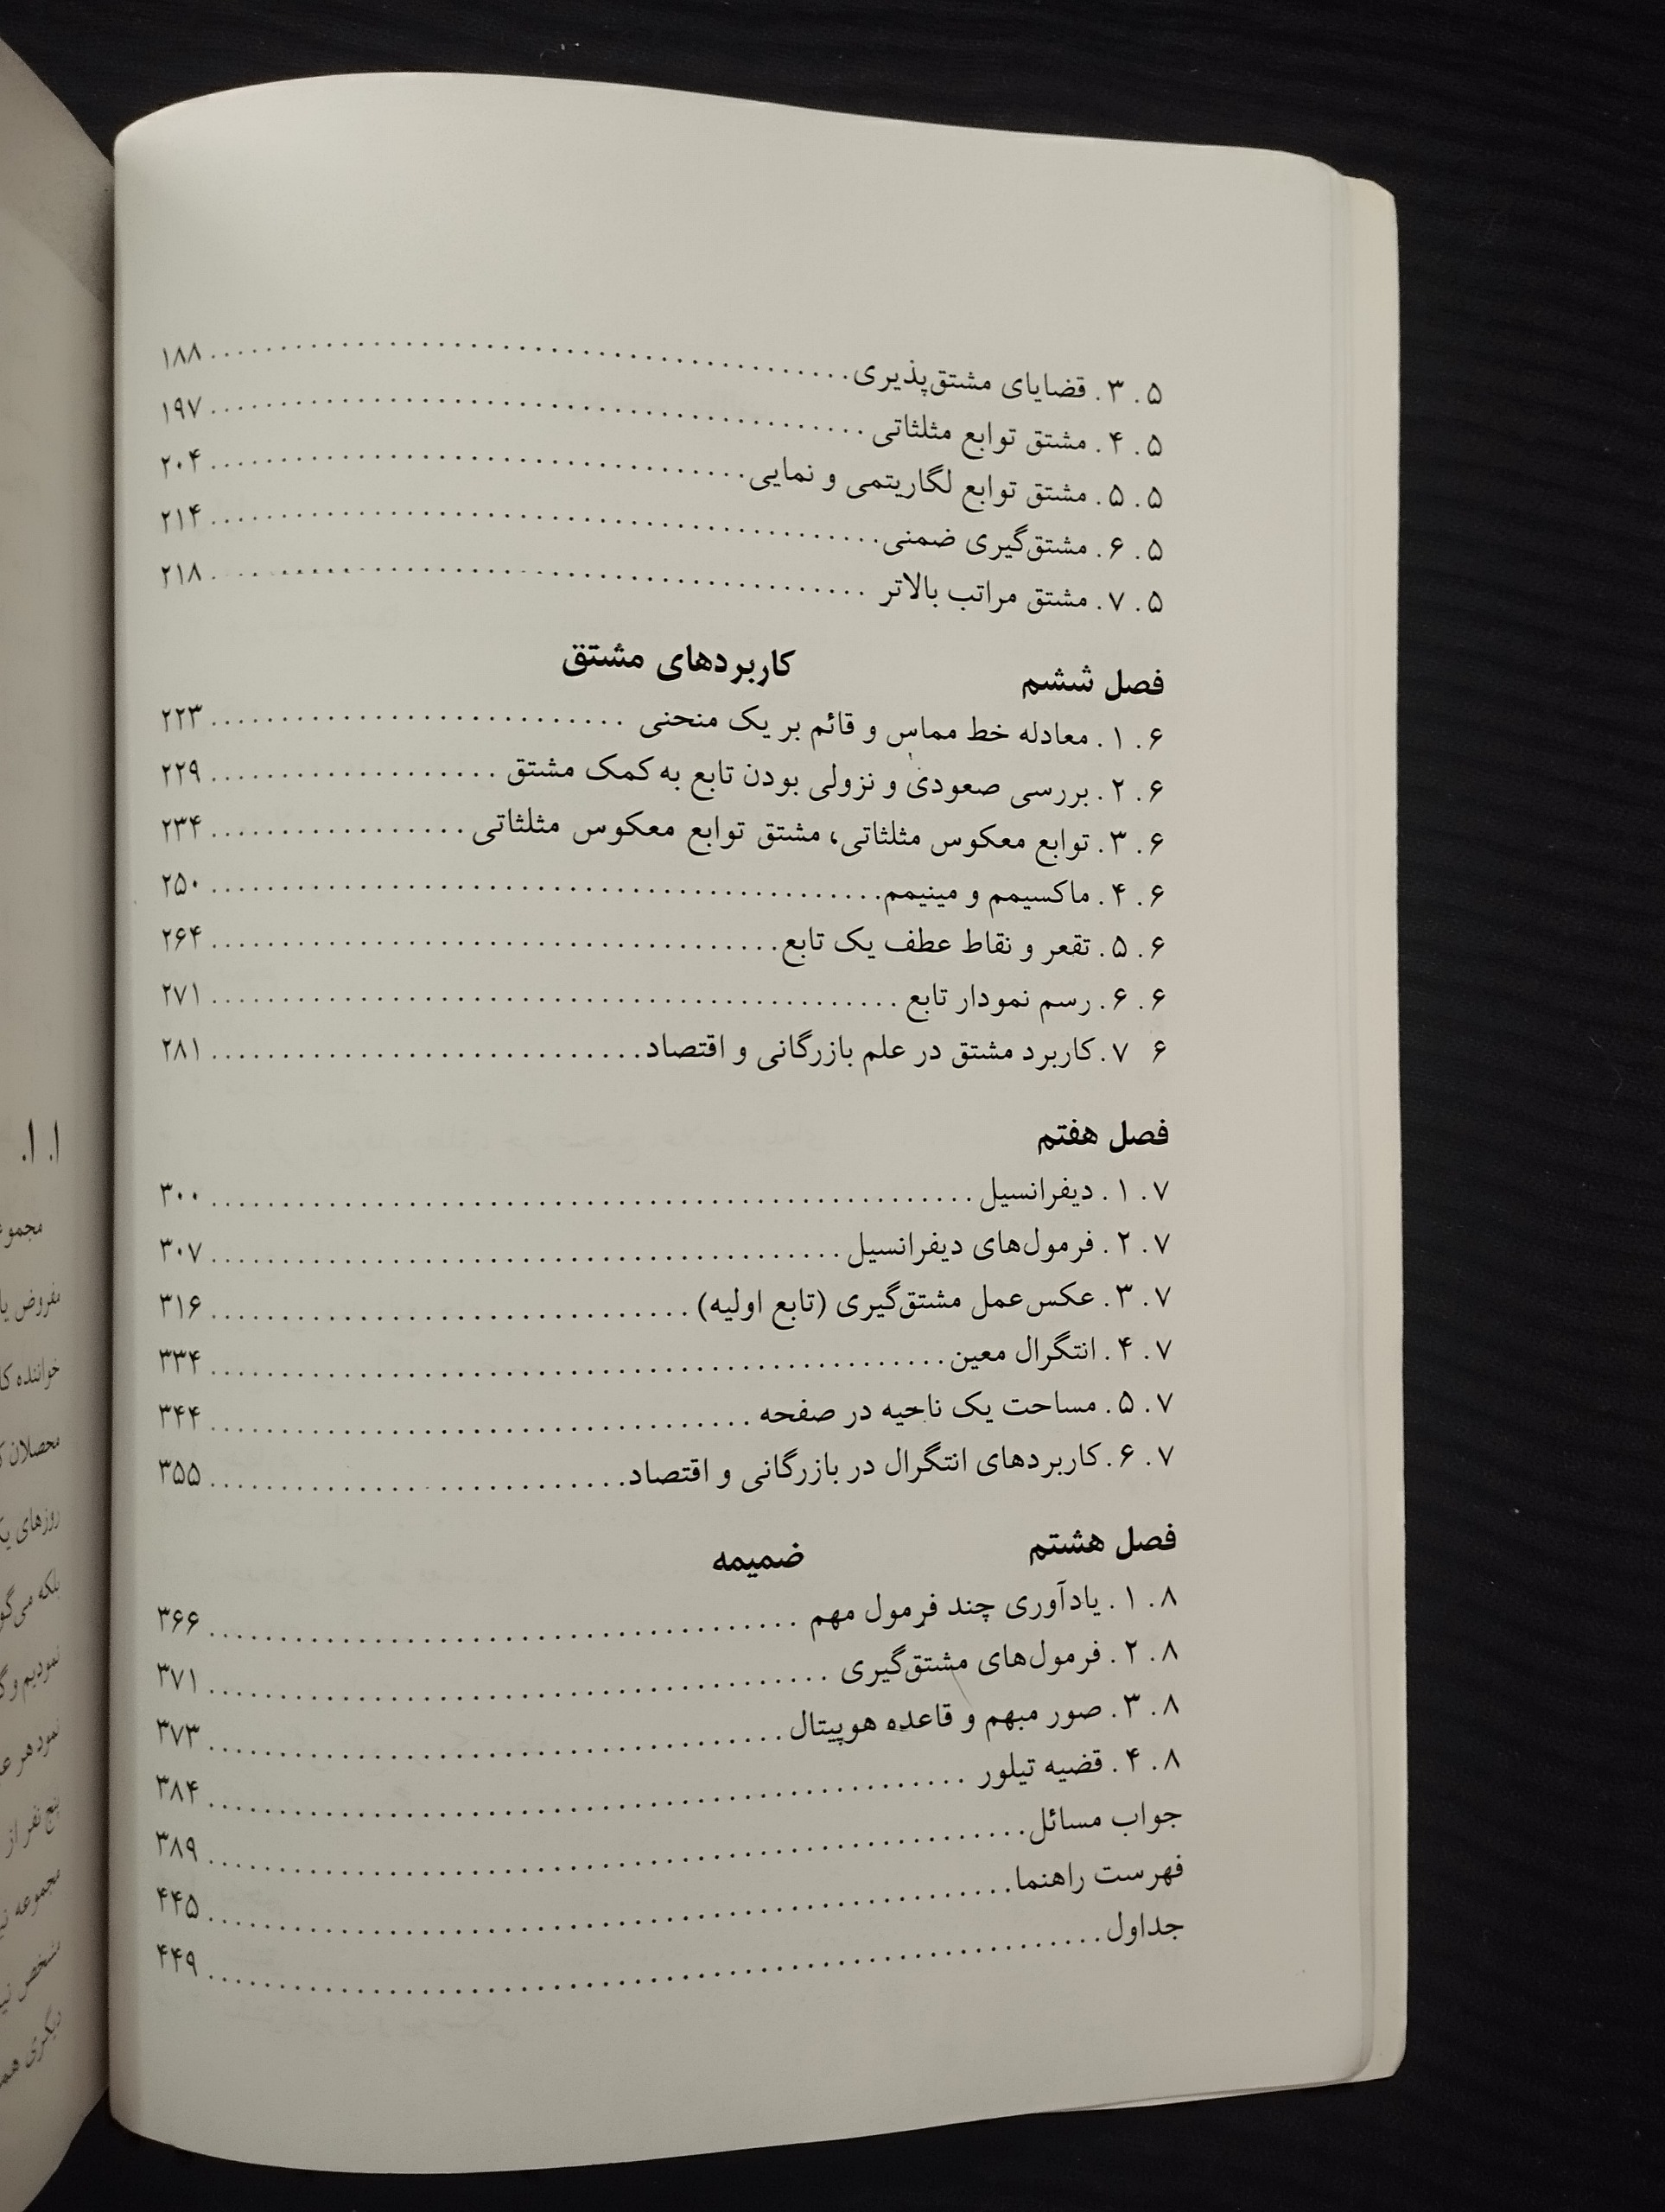 ۵. ۳. قضایای مشتق‌پذیری ........ ۱۸۸
۵. ۴. مشتق توابع مثلثاتی ........ ۱۹۷
۵. ۵. مشتق توابع لگاریتمی و نمایی ........ ۲۰۴
۵. ۶. مشتق‌گیری ضمنی ........ ۲۱۴
۵. ۷. مشتق مراتب بالاتر ........ ۲۱۸
فصل ششم کاربردهای مشتق
۶. ۱. معادله خط مماس و قائم بر یک منحنی ........ ۲۲۳
۶. ۲. بررسی صعودی و نزولی بودن تابع به کمک مشتق ........ ۲۲۹
۶. ۳. توابع معکوس مثلثاتی، مشتق توابع معکوس مثلثاتی ........ ۲۳۴
۶. ۴. ماکسیمم و مینیمم ........ ۲۵۰
۶. ۵. تقعر و نقاط عطف یک تابع ........ ۲۶۴
۶. ۶. رسم نمودار تابع ........ ۲۷۱
۶ ۷. کاربرد مشتق در علم بازرگانی و اقتصاد ........ ۲۸۱
فصل هفتم
۷. ۱. دیفرانسیل ........ ۳۰۰
۷. ۲. فرمول‌های دیفرانسیل ........ ۳۰۷
۷. ۳. عکس‌عمل مشتق‌گیری (تابع اولیه) ........ ۳۱۶
۷. ۴. انتگرال معین ........ ۳۳۴
۷. ۵. مساحت یک ناحیه در صفحه ........ ۳۴۴
۷. ۶. کاربردهای انتگرال در بازرگانی و اقتصاد ........ ۳۵۵
فصل هشتم ضمیمه
۸. ۱. یادآوری چند فرمول مهم ........ ۳۶۶
۸. ۲. فرمول‌های مشتق‌گیری ........ ۳۷۱
۸. ۳. صور مبهم و قاعده هوپیتال ........ ۳۷۳
۸. ۴. قضیه تیلور ........ ۳۸۴
جواب مسائل ........ ۳۸۹
فهرست راهنما ........ ۴۴۵
جداول ........ ۴۴۹
۱. ۱.
مفروض
خواننده
محصلان
روزهای
بلکه
نمودیم
نمود هر
پنج نفر از
مجموعه
شخص
دیگری